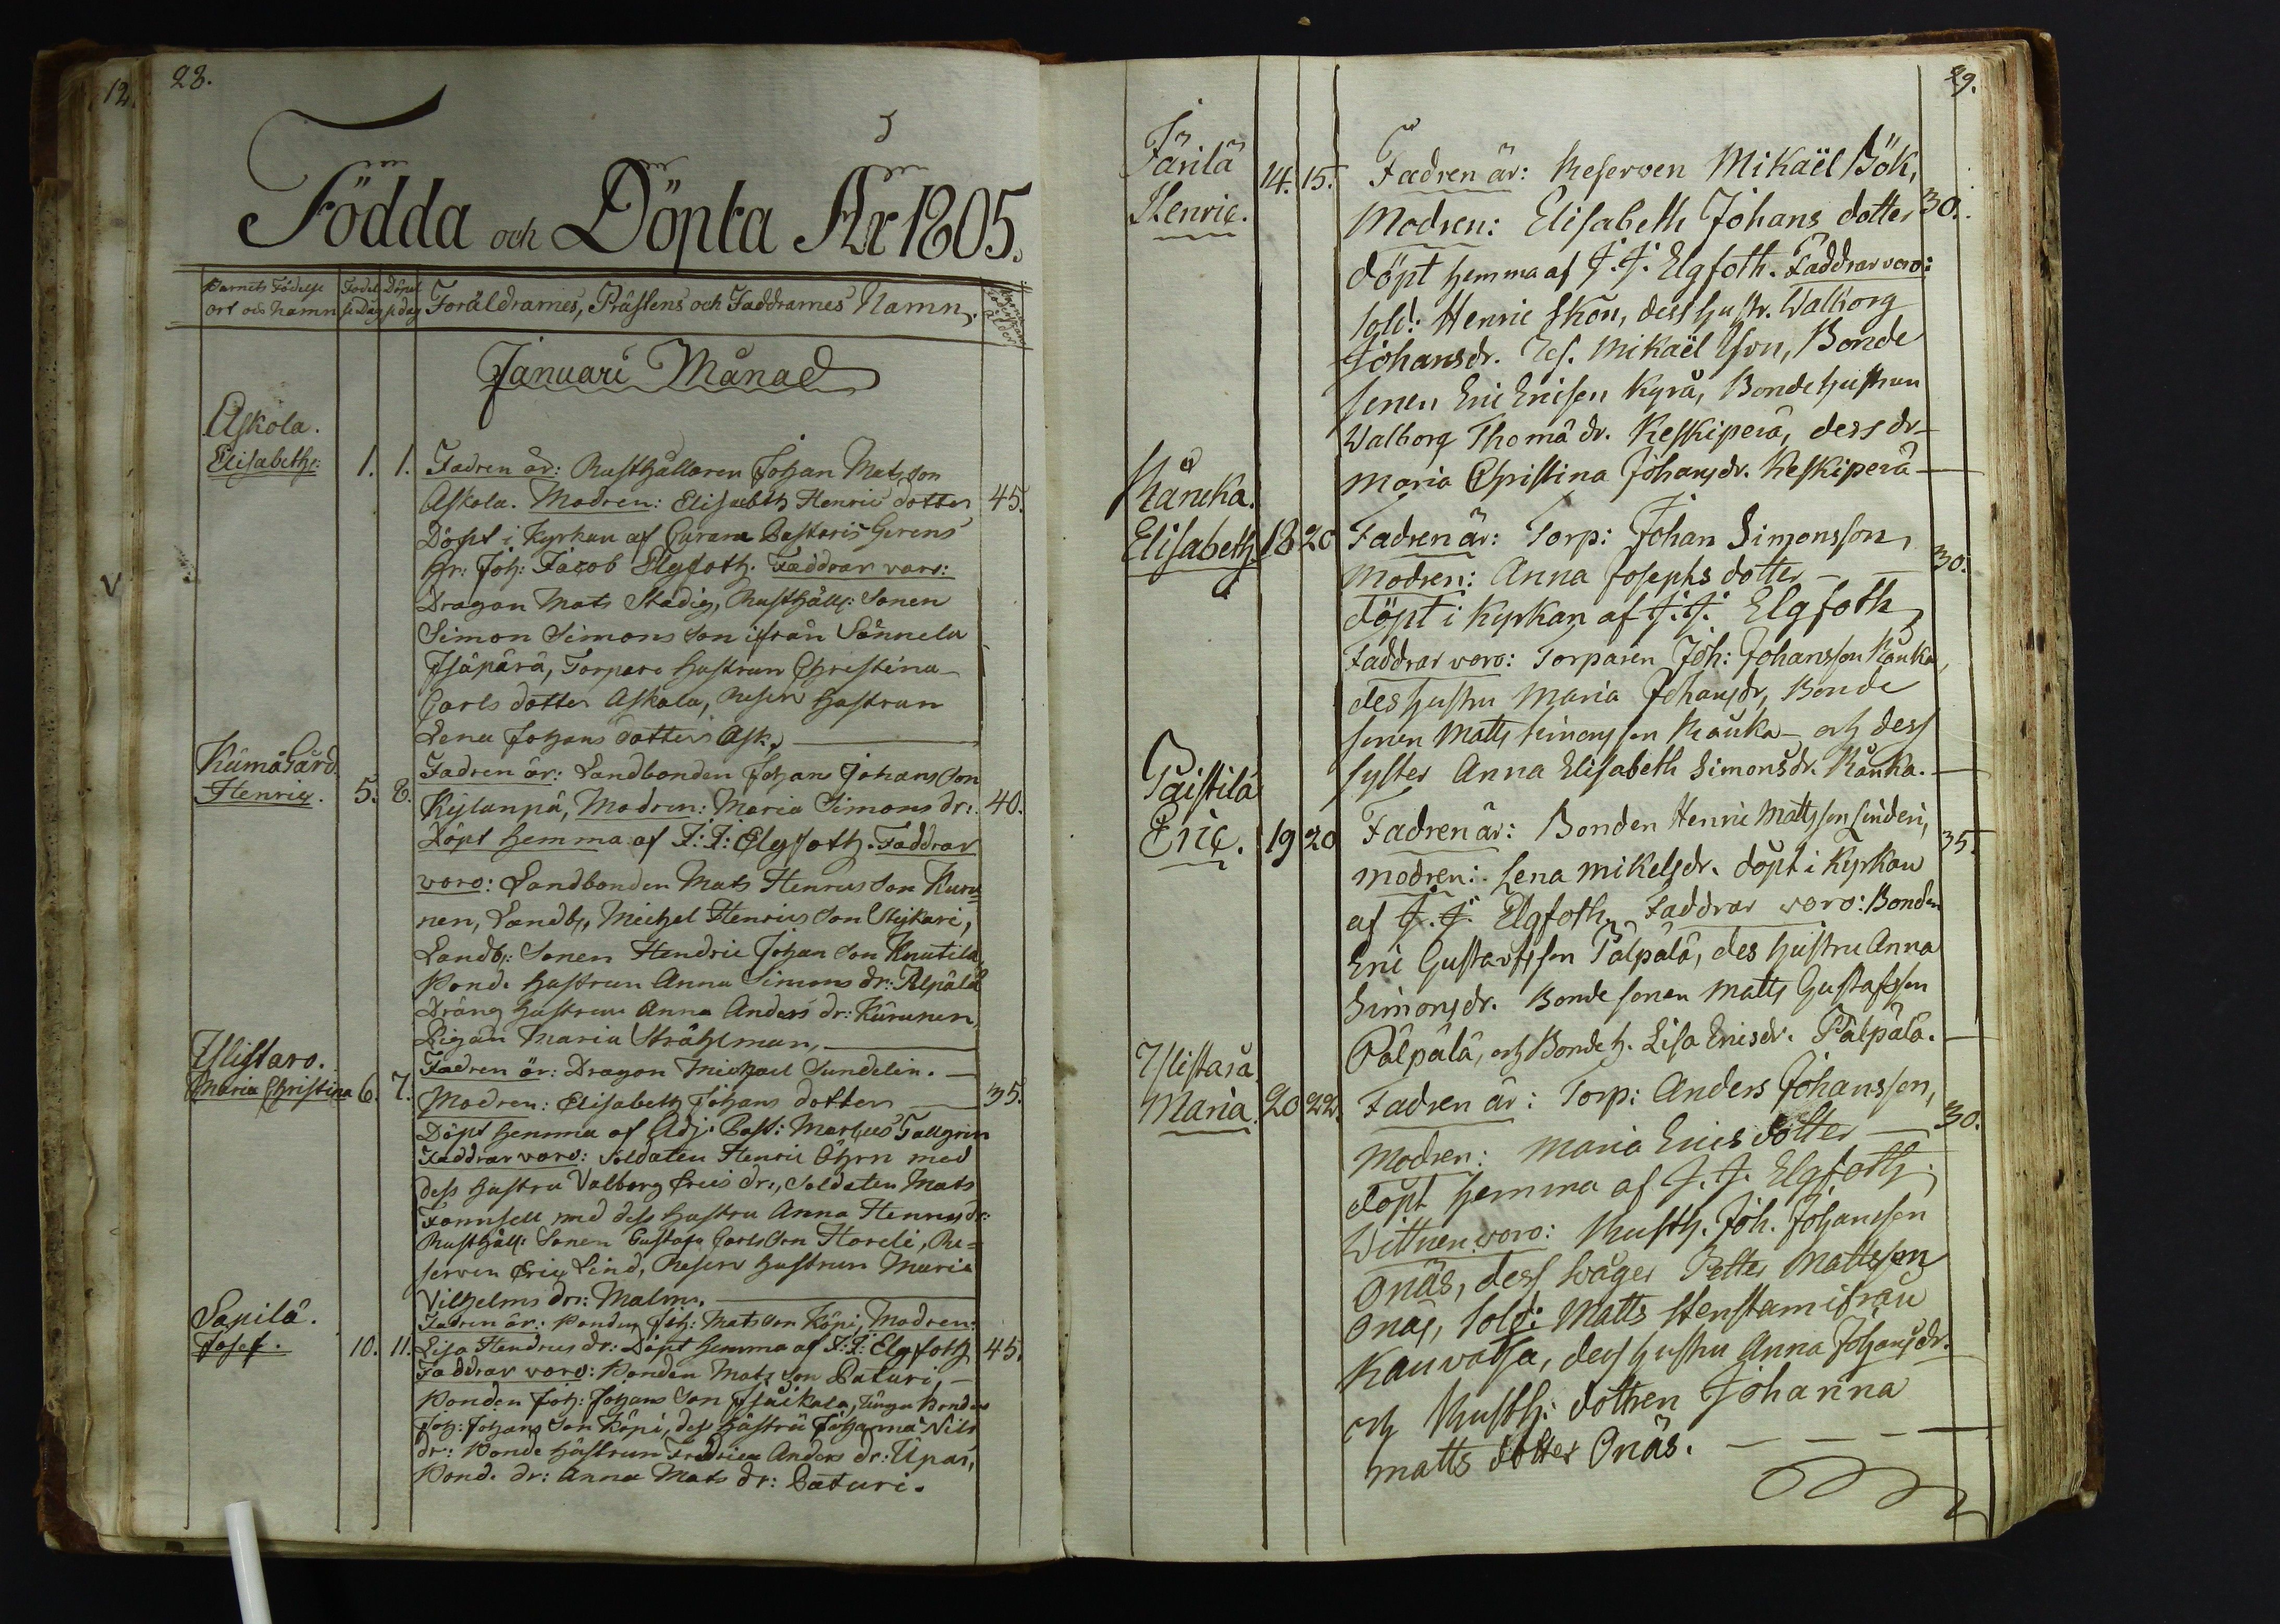 12.
28.
Födda och Döpta År 1805.
Barnets Födelse
ort och Namn
Födel
se Dag
Döpel
se dag
Föräldrarnes, Prästens och Faddrarnes Namn.
Januari Månad
Askola.
Elisabeth:
1. 1. Fadren är: Rusthållaren Johan Matsson
Askola. Modren: Elisabeth Henric dotter 45.
Döpt i Kyrkan af Curam Pastoris Gerens
Hr: Joh: Jacob Elgfoth. Faddrar voro:
Dragon Mats Stadig, Rusthålls: Sonen
Simon Simons Son ifrån Sännelu
Isäpärä, Torpare hustrun Christina
Carls dotter Askola, Reserv hustrun
Lena Johans dotter Ask.
Kumåsård
Henric. 5. 8.
Fadren är: Landbonden Johan Johansson
Kylänpä, Modren: Maria Simons dr: 40.
Döpt hemma af J: J: Elgfoth. Faddrar
voro: Landbonden Mats Henrics Son Kuru-
nen, Landb. Michel Henrics Son Stykari,
Landb: Sonen Hendric Johan Son Knutila,
Bond. hustrun Anna Simons dr: Pälpälä
Dräng hustrun Anna Anders dr: Kurunen,
Pigan Maria Stråhlman,
Ylistaro.
Maria Christina 6. 7.
Fadren är: Dragon Michael Sundelin.
Modren: Elisabeth Johans dotter 35.
Döpt hemma af Adj: Past: Marcus Tallgrin
Faddrar voro: Soldaten Henric Öhrn med
dess hustru Valborg Erics dr:, Soldaten Mats
Fannsell med dess hustru Anna Henricsdr:
Rusthåll: Sonen Gustaf Carls Son Horeli, Re-
serven Eric Lind, Reserv hustrun Maria
Vilhelms dr: Malm.
Sapilä.
Josef. 10. 11.
Fadren är: Bonden Joh: Mats Son Köpi, Modren:
Lisa Hendrics dr: Döpt hemma af J: J: Elgfoth 45.
Faddrar voro: Bonden Mats Son Paturi,
Bonden Joh: Johans Son Isäikala, unga Bonden
Joh: Johans Son Köpi, dess hustru Johanna Nils
dr: Bonde hustrun Fredrica Anders dr: Upas,
Bond. dr: Anna Mats dr: Paturi.
29.
Järilä
Henric. 14. 15.
Fadren är: Reserven Mikaël Bök,
Modren: Elisabeth Johans dotter 30.
döpt hemma af J. J. Elgfoth. Faddrar voro:
Sold: Henric Skön, dess hustr. Walborg
Johansdr. Res. Mikaël Yvon, Bonde
sonen Eric Ericson Kyrå, Bondehustrun
Walborg Thomä dr. Keskiperä, dess dr
Maria Christina Johansdr. Keskiperä
Kauka.
Elisabeth 18 20
Fadren är: Torp: Johan Simonsson,
Modren: Anna Josephs dotter 30.
döpt i Kyrkan af J. J. Elgfoth
Faddrar voro: Torparen Joh: Johansson Kauka,
des hustru Maria Johansdr, Bonde
sonen Matts Simonsson Kauka och dess
syster Anna Elisabeth Simonsdr. Kauka.
Paistila
Eric. 19 20
Fadren är: Bonden Henric Mattsson Linderi, 35.
modren: Lena Mikelsdr. döpt i Kyrkan
af J. J. Elgfoth Faddrar voro: Bonden
Eric Gustavsson Pälpälä, des hustru Anna
Simonsdr. Bonde sonen Matts Gustafsson
Pälpälä, och Bonde h. Lisa Ericsdr. Pälpälä.
Ylistara
Maria. 20 22.
Fadren är: Torp: Anders Johansson,
Modren: Maria Erics dotter 30.
döpt hemma af J. J. Elgfoth
Wittnen voro: Rusth. Joh. Johansson
Onäs, dess swåger Petter Mattsson
Onäs, Sold: Matts Stenstam ifrån
Kauvatsa, dess hustru Anna Johansdr.
och Rusth: dottren Johanna
Matts dotter Onäs.